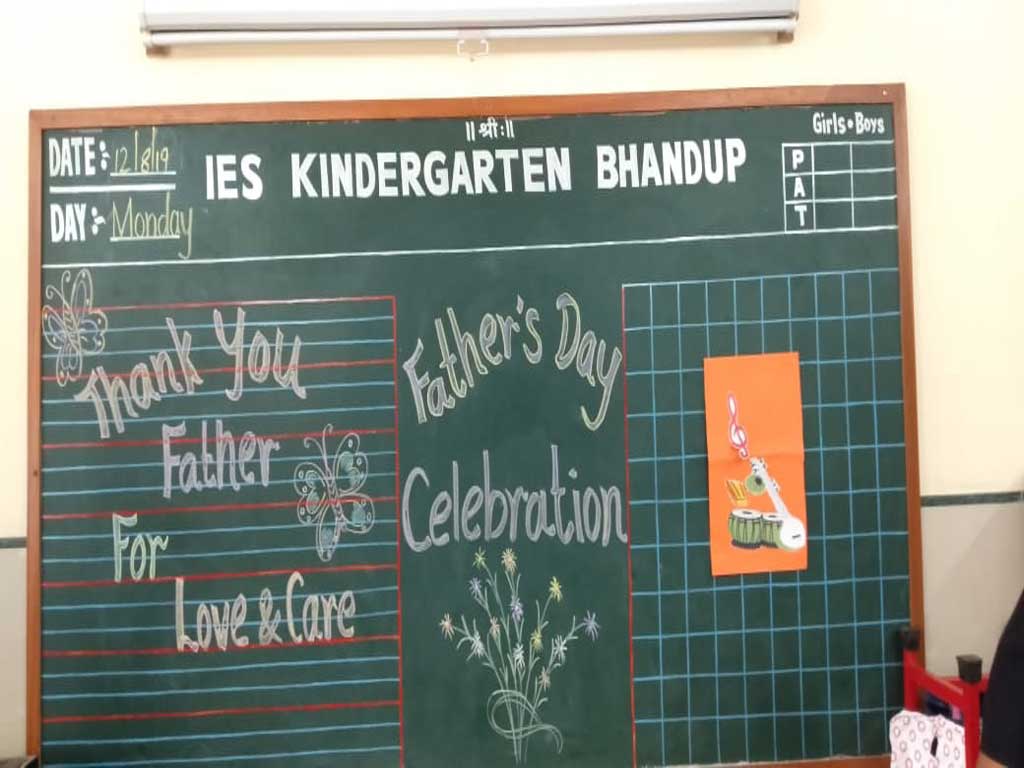 ॥ श्री: ॥
Girls • Boys
DATE:- 12/8/19
IES KINDERGARTEN BHANDUP
P
A
T
DAY:- Monday
Thank You
Father
For
Love & Care
Father's Day
Celebration